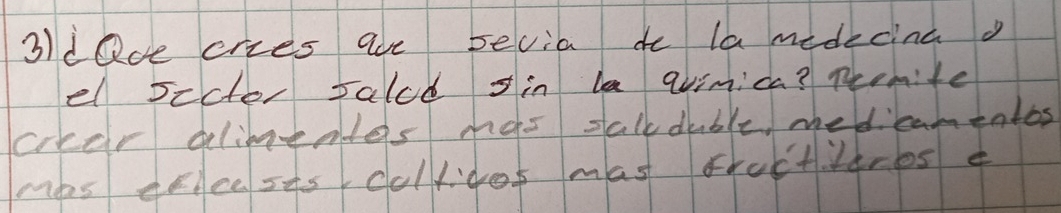 3) ¿Qoe crees que sevia de la medecina o
el sector salud sin la química? Permite
crear alimentos mas saludable, medicamentos
mas eficases, cultivos mas fructiferos e